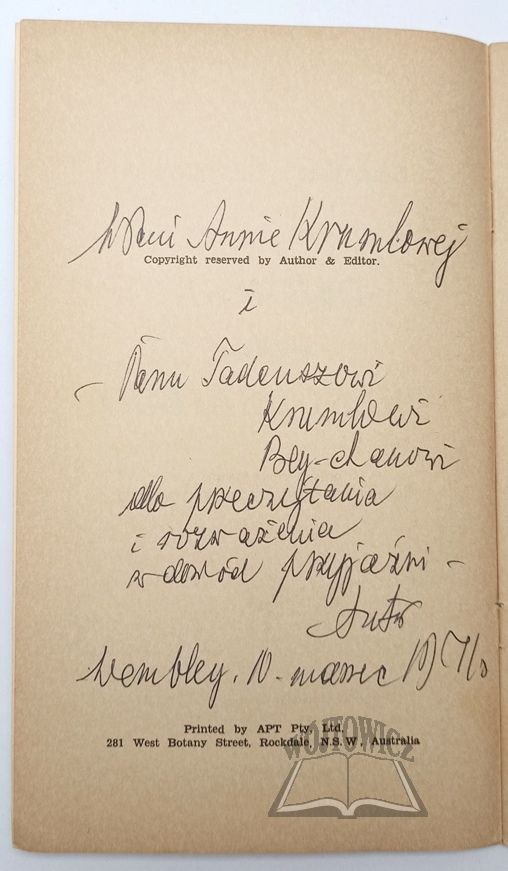 WPani Annie Krumlowej
Copyright reserved by Author & Editor.
i
– Panu Tadeuszowi
Krumlowi
Bey-chanowi
dla przeczytania
i rozważenia
w dowód przyjaźni –
Autor
Wembley, 10 – marzec
Printed by APT Pty. Ltd.
281 West Botany Street, Rockdale, N.S.W., Australia
WÓJTOWICZ